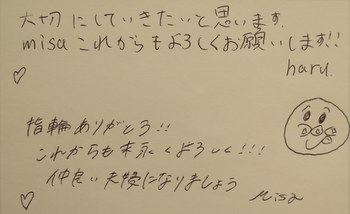 大切にしていきたいと思います.
misa これからもよろしくお願いします!!
haru.
指輪ありがとう!!
これからも末永くよろしく!!!
仲良い夫婦になりましょう
Misa